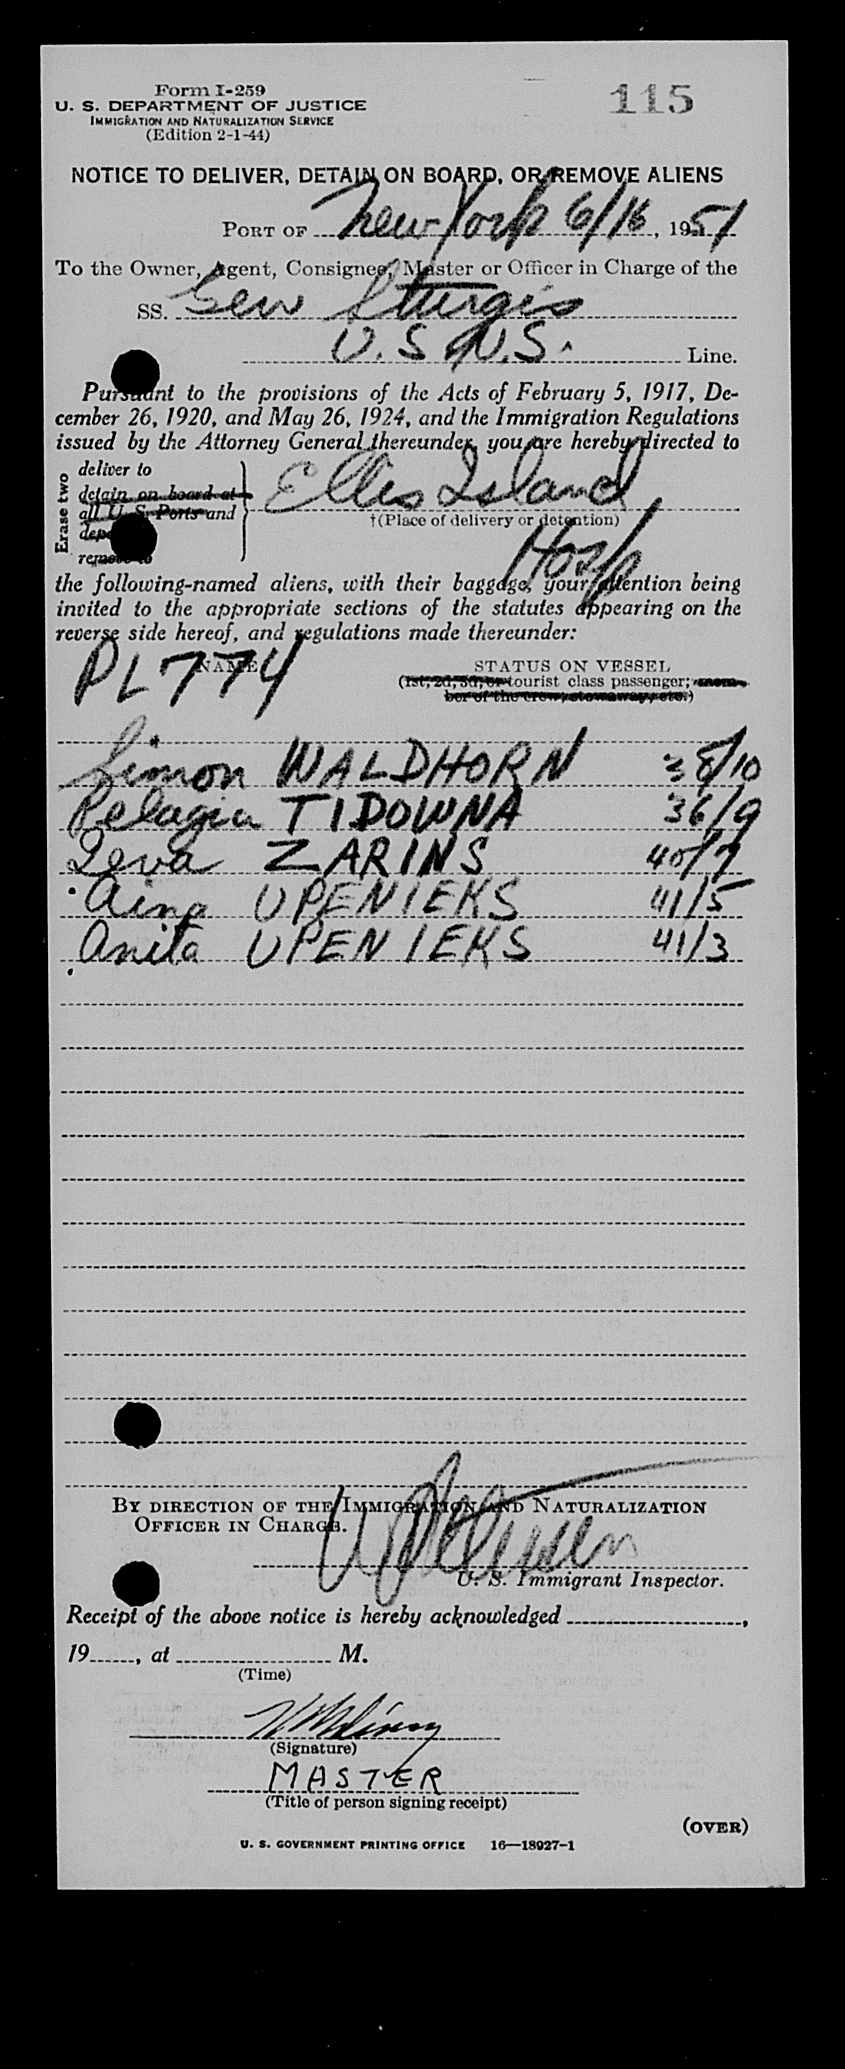 Form I-259
115
U. S. DEPARTMENT OF JUSTICE
IMMIGRATION AND NATURALIZATION SERVICE
(Edition 2-1-44)
NOTICE TO DELIVER, DETAIN ON BOARD, OR REMOVE ALIENS
PORT OF New York 6/16, 1951
To the Owner, Agent, Consignee, Master or Officer in Charge of the
SS. Gen Sturgis
U.S.N.S. Line.
Pursuant to the provisions of the Acts of February 5, 1917, De-
cember 26, 1920, and May 26, 1924, and the Immigration Regulations
issued by the Attorney General thereunder, you are hereby directed to
Erase two
deliver to
detain on board at
all U. S. Ports and
remove to
Ellis Island
†(Place of delivery or detention)
Hosp
the following-named aliens, with their baggage, your attention being
invited to the appropriate sections of the statutes appearing on the
reverse side hereof, and regulations made thereunder:
NAME STATUS ON VESSEL
PL 774 (1st, 2d, 3d, or tourist class passenger; mem-
ber of the crew, stowaway, etc.)
Simon WALDHORN 38/10
Pelagia TIDOWNA 36/9
Ieva ZARINS 40/7
Aina UPENIEKS 41/5
Anita UPENIEKS 41/3
BY DIRECTION OF THE IMMIGRATION AND NATURALIZATION
OFFICER IN CHARGE.
U. S. Immigrant Inspector.
Receipt of the above notice is hereby acknowledged ,
19 , at M.
(Time)
(Signature)
MASTER
(Title of person signing receipt)
(OVER)
U. S. GOVERNMENT PRINTING OFFICE 16—18927-1